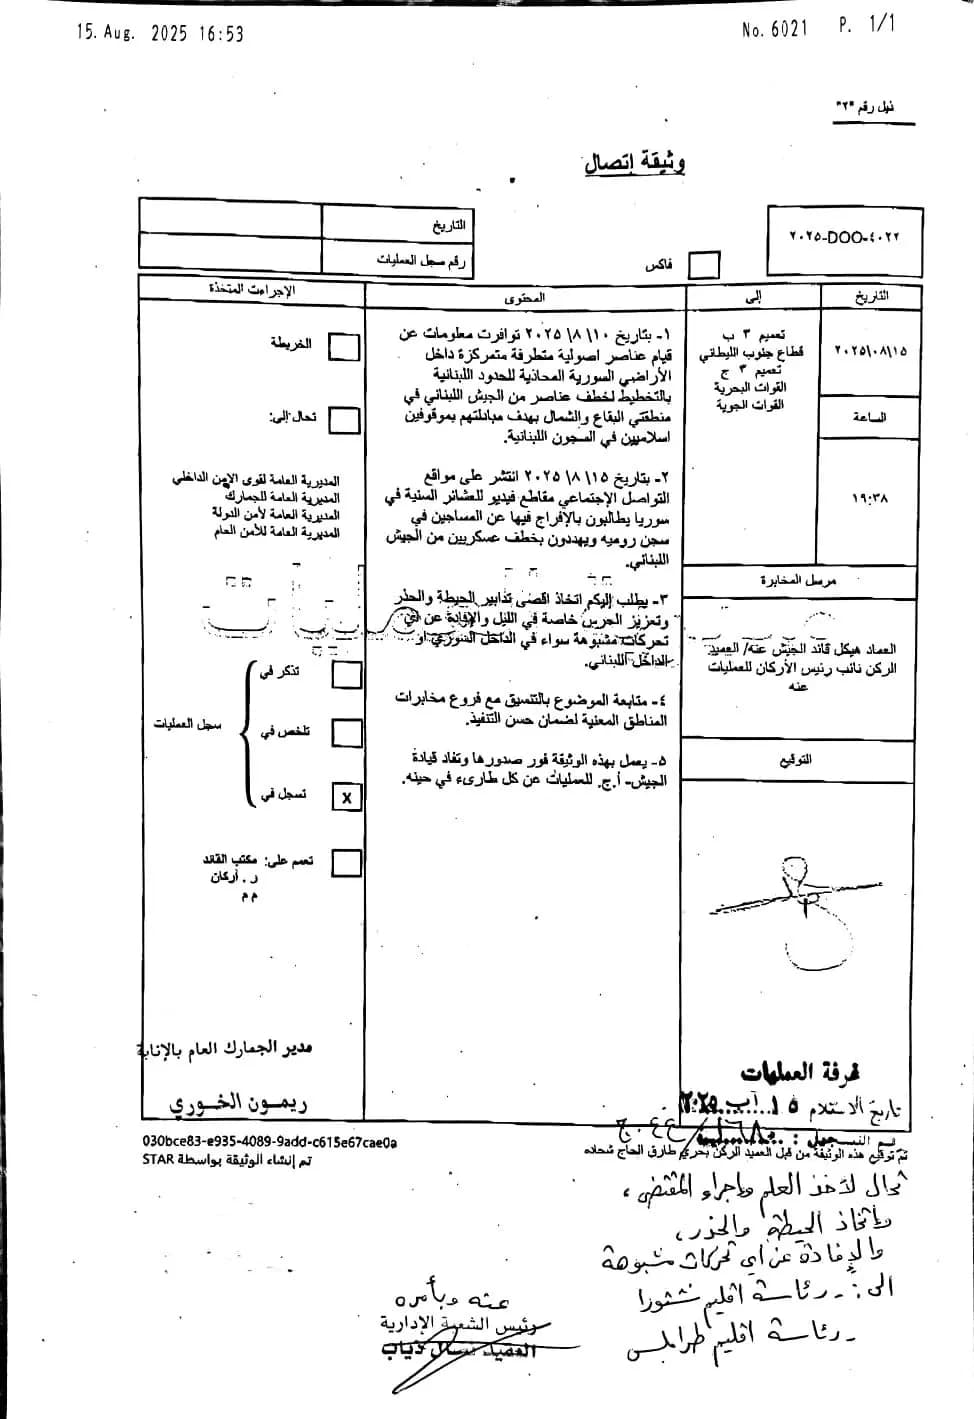 15. Aug. 2025 16:53
No. 6021 P. 1/1
ذيل رقم "٢"
وثيقة إتصال
٢٠٢٥-DOO-٤٠٢٢
فاكس
التاريخ
رقم سجل العمليات
التاريخ
إلى
المحتوى
الإجراءت المتخذة
٢٠٢٥\٠٨\١٥
الساعة
١٩:٣٨
تعميم ٣ ب
قطاع جنوب الليطاني
تعميم ٣ ج
القوات البحرية
القوات الجوية
مرسل المخابرة
العماد هيكل قائد الجيش عنه/ العميد
الركن نائب رئيس الأركان للعمليات
عنه
التوقيع
١- بتاريخ ١٠\ ٨\ ٢٠٢٥ توافرت معلومات عن
قيام عناصر اصولية متطرفة متمركزة داخل
الأراضي السورية المحاذية للحدود اللبنانية
بالتخطيط لخطف عناصر من الجيش اللبناني في
منطقتي البقاع والشمال بهدف مبادلتهم بموقوفين
اسلاميين في السجون اللبنانية.
٢- بتاريخ ١٥\ ٨\ ٢٠٢٥ انتشر على مواقع
التواصل الإجتماعي مقاطع فيديو للعشائر السنية في
سوريا يطالبون بالإفراج فيها عن المساجين في
سجن روميه ويهددون بخطف عسكريين من الجيش
اللبناني.
٣- يطلب إليكم اتخاذ اقصى تدابير الحيطة والحذر
وتعزيز الحرس خاصة في الليل والإفادة عن أي
تحركات مشبوهة سواء في الداخل السوري او
الداخل اللبناني.
٤- متابعة الموضوع بالتنسيق مع فروع مخابرات
المناطق المعنية لضمان حسن التنفيذ.
٥- يعمل بهذه الوثيقة فور صدورها وتفاد قيادة
الجيش- أ.ج. للعمليات عن كل طارىء في حينه.
الخريطة
تحال إلى:
المديرية العامة لقوى الامن الداخلي
المديرية العامة للجمارك
المديرية العامة لأمن الدولة
المديرية العامة للأمن العام
تذكر في
تلخص في
سجل العمليات
تسجل في
X
تعمم على: مكتب القائد
ر. أركان
م م
مدير الجمارك العام بالإنابة
ريمون الخوري
غرفة العمليات
تاريخ الاستلام ١٥ آب ٢٠٢٥
030bce83-e935-4089-9add-c615e67cae0a
تم إنشاء الوثيقة بواسطة STAR
تم توقيع هذه الوثيقة من قبل العميد الركن بحري طارق الحاج شحاده
تحال لأخذ العلم واجراء المقتضى،
واتخاذ الحيطة والحذر،
والإفادة عن اي تحركات مشبوهة
الى: - رئاسة اقليم شتورا
- رئاسة اقليم طرابلس
عنه وبأمره
رئيس الشعبة الإدارية